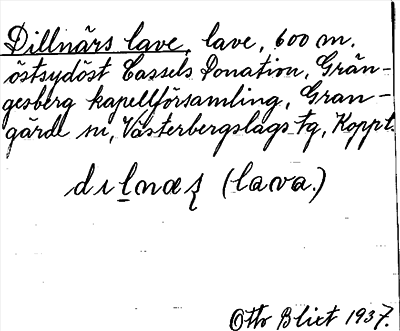 Dillnärs lave, lave, 600 m.
östsydöst Cassels Donation, Grän-
gesberg kapellförsamling, Gran-
gärde sn, Västerbergslags tg, Koppb.
(lava.)
Otto Blixt 1937.